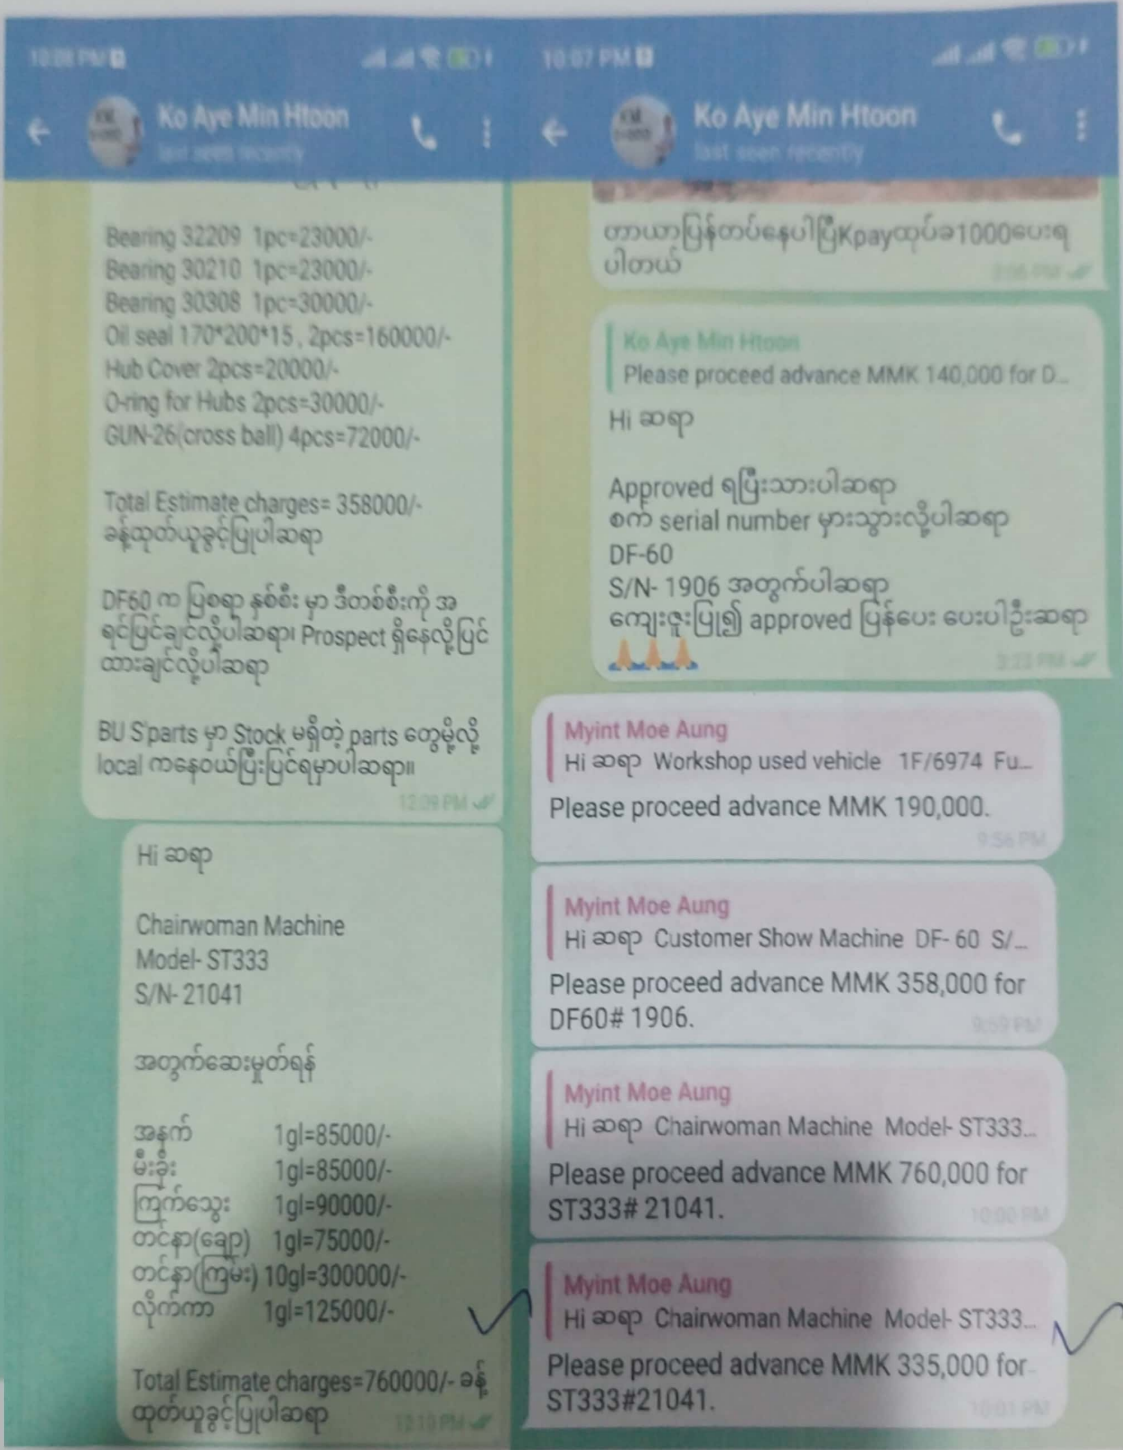 10:08 PM
Ko Aye Min Htoon
last seen recently
Bearing 32209 1pc=23000/-
Bearing 30210 1pc=23000/-
Bearing 30308 1pc=30000/-
Oil seal 170*200*15 , 2pcs=160000/-
Hub Cover 2pcs=20000/-
O-ring for Hubs 2pcs=30000/-
GUN-26(cross ball) 4pcs=72000/-
Total Estimate charges= 358000/-
ခန့်ထုတ်ယူခွင့်ပြုပါဆရာ
DF60 က ပြစရာ နှစ်စီး မှာ ဒီတစ်စီးကို အ
ရင်ပြင်ချင်လို့ပါဆရာ၊ Prospect ရှိနေလို့ပြင်
ထားချင်လို့ပါဆရာ
BU S'parts မှာ Stock မရှိတဲ့ parts တွေမို့လို့
local ကနေဝယ်ပြီးပြင်ရမှာပါဆရာ။
12:09 PM
Hi ဆရာ
Chairwoman Machine
Model- ST333
S/N- 21041
အတွက်ဆေးမှုတ်ရန်
အနက် 1gl=85000/-
မီးခိုး 1gl=85000/-
ကြက်သွေး 1gl=90000/-
တင်နာ(ချော) 1gl=75000/-
တင်နာ(ကြမ်း) 10gl=300000/-
လိုက်ကာ 1gl=125000/-
Total Estimate charges=760000/- ခန့်
ထုတ်ယူခွင့်ပြုပါဆရာ
12:10 PM
10:07 PM
Ko Aye Min Htoon
last seen recently
တာယာပြန်တပ်နေပါပြီKpayထုပ်ခ1000ပေးရ
ပါတယ်
Ko Aye Min Htoon
Please proceed advance MMK 140,000 for D...
Hi ဆရာ
Approved ရပြီးသားပါဆရာ
စက် serial number မှားသွားလို့ပါဆရာ
DF-60
S/N- 1906 အတွက်ပါဆရာ
ကျေးဇူးပြု၍ approved ပြန်ပေး ပေးပါဦးဆရာ
🙏🙏🙏
3:23 PM
Myint Moe Aung
Hi ဆရာ Workshop used vehicle 1F/6974 Fu...
Please proceed advance MMK 190,000.
9:56 PM
Myint Moe Aung
Hi ဆရာ Customer Show Machine DF- 60 S/...
Please proceed advance MMK 358,000 for
DF60# 1906.
9:59 PM
Myint Moe Aung
Hi ဆရာ Chairwoman Machine Model- ST333...
Please proceed advance MMK 760,000 for
ST333# 21041.
10:00 PM
Myint Moe Aung
Hi ဆရာ Chairwoman Machine Model- ST333...
Please proceed advance MMK 335,000 for
ST333#21041.
10:01 PM